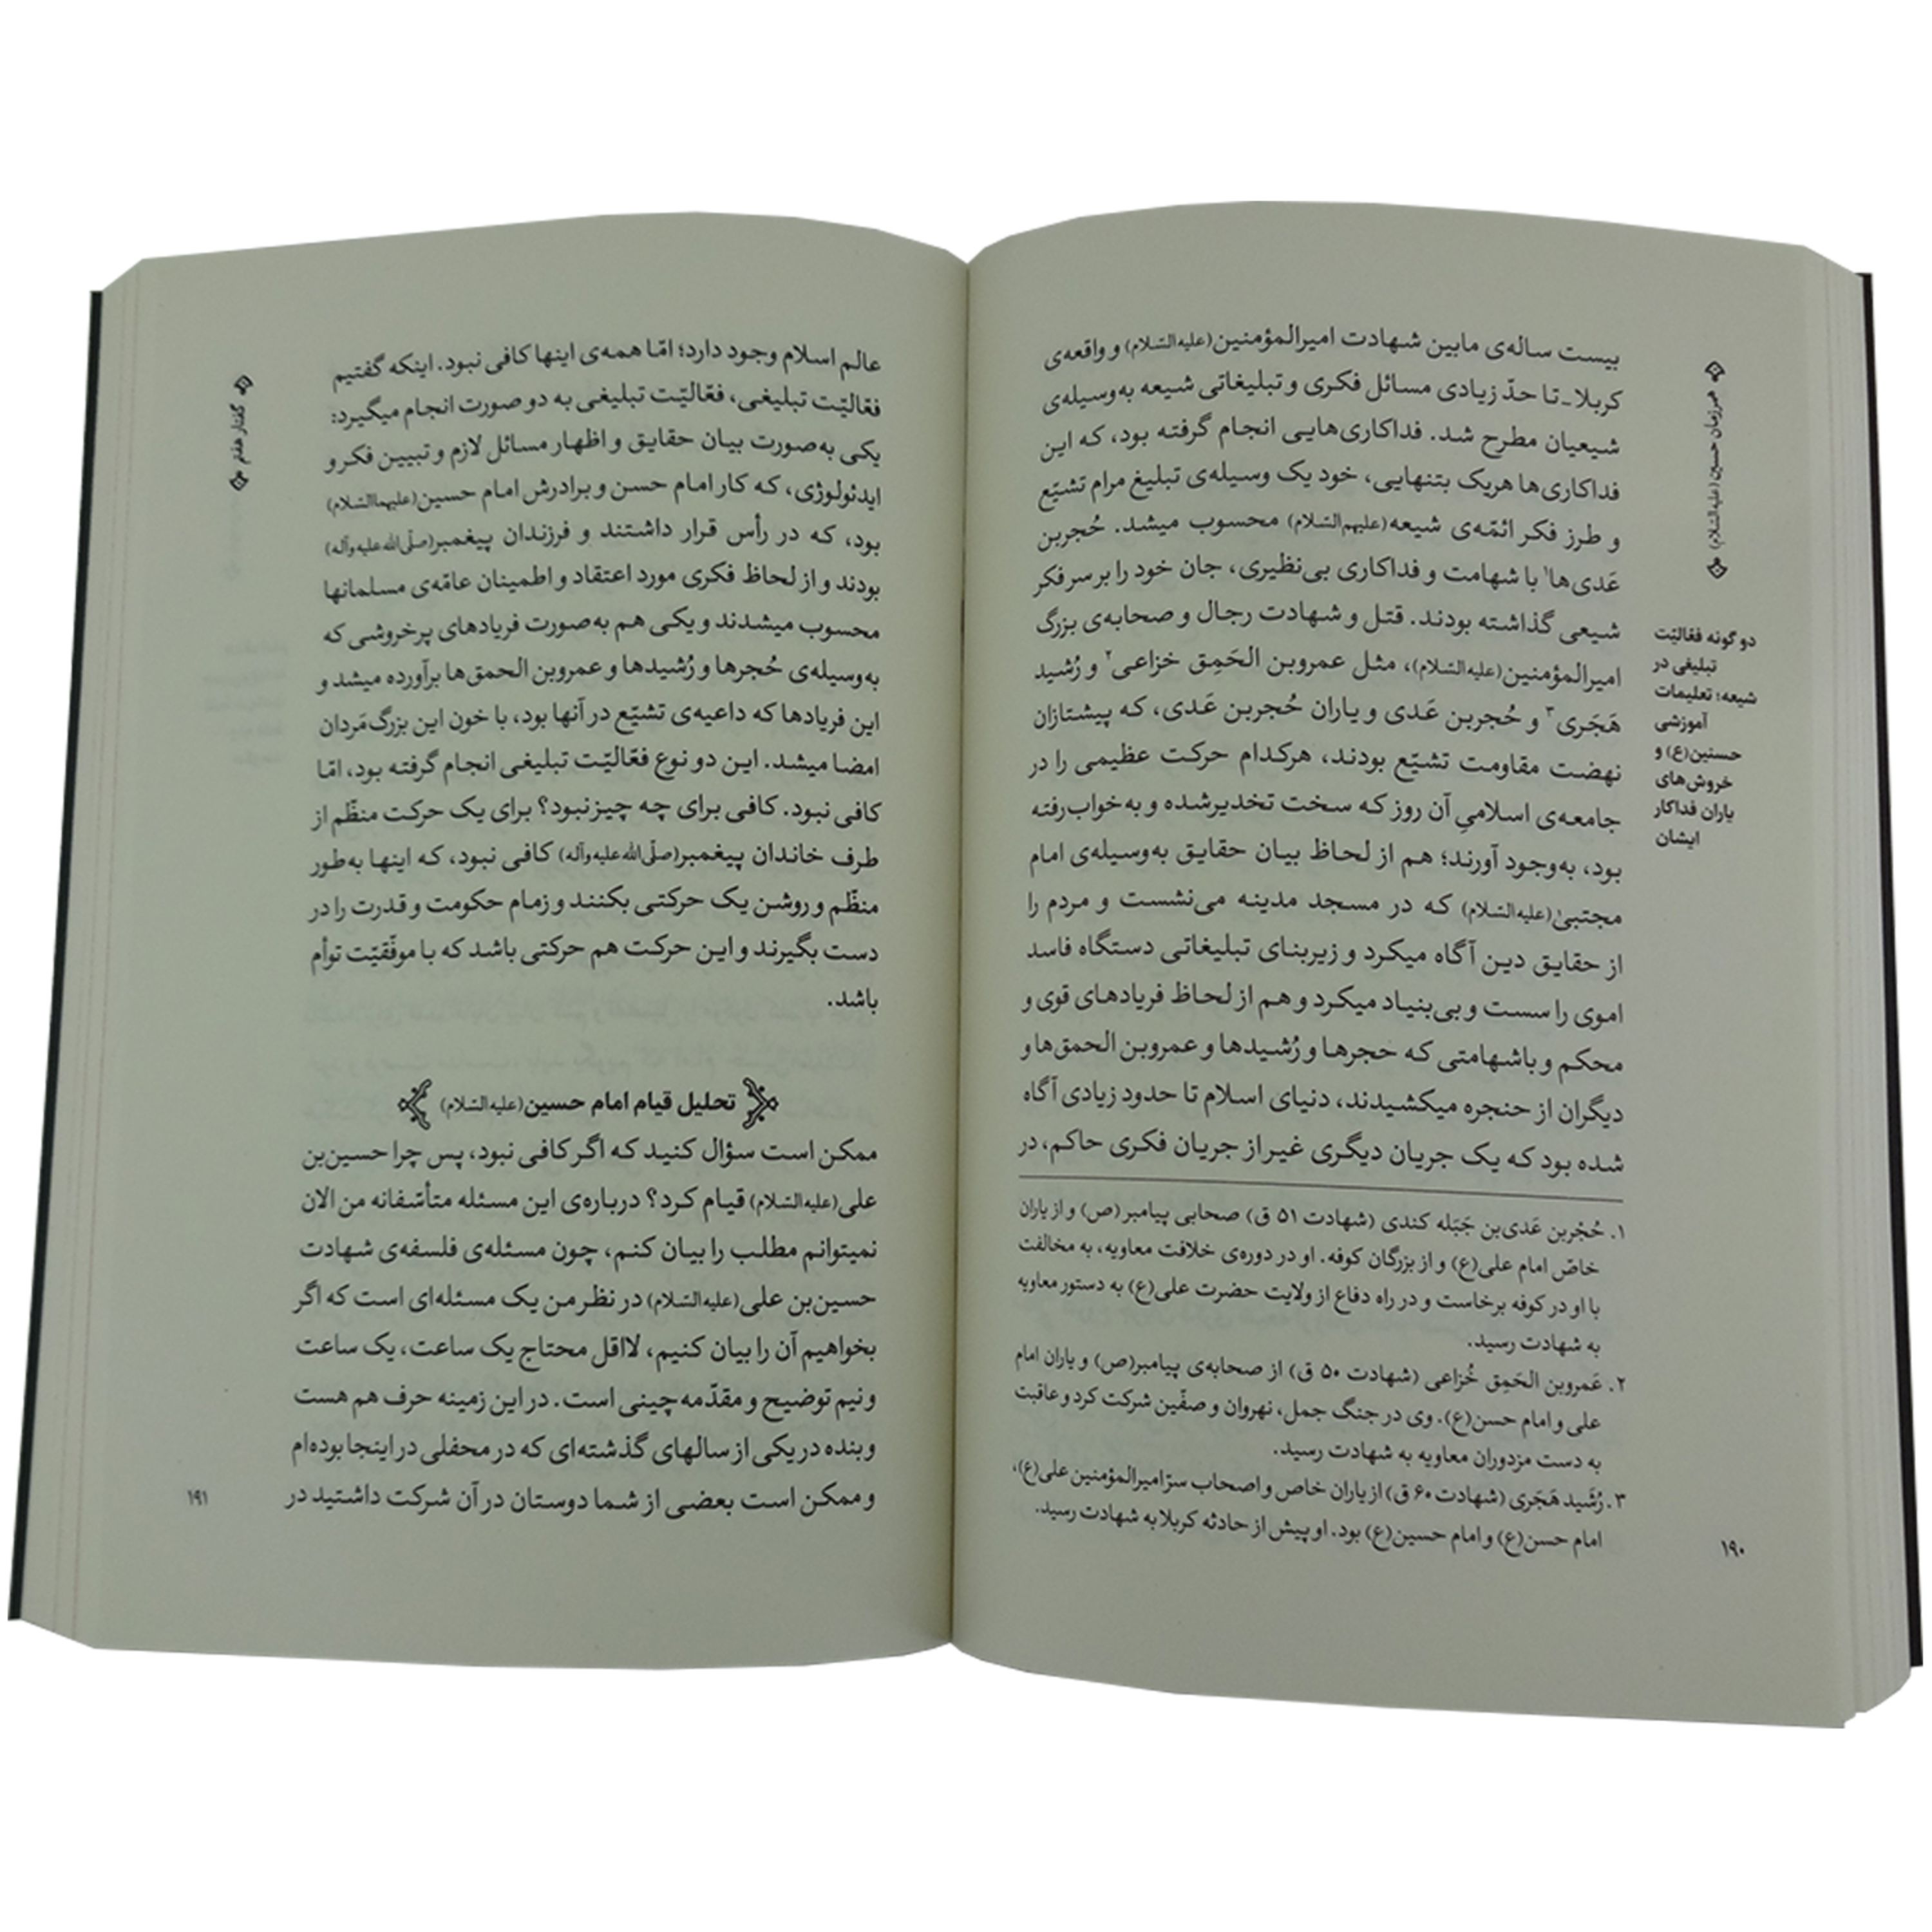 همرزمان حسین (علیه‌السّلام)
بیست ساله‌ی مابین شهادت امیرالمؤمنین(علیه‌السّلام) و واقعه‌ی
کربلا ـ تا حدّ زیادی مسائل فکری و تبلیغاتی شیعه به‌وسیله‌ی
شیعیان مطرح شد. فداکاری‌هایی انجام گرفته بود، که این
فداکاری‌ها هریک بتنهایی، خود یک وسیله‌ی تبلیغ مرام تشیّع
و طرز فکر ائمّه‌ی شیعه(علیهم‌السّلام) محسوب میشد. حُجربن
عَدی‌ها۱ با شهامت و فداکاری بی‌نظیری، جان خود را بر سر فکر
شیعی گذاشته بودند. قتل و شهادت رجال و صحابه‌ی بزرگ
امیرالمؤمنین(علیه‌السّلام)، مثل عمروبن الحَمِق خزاعی۲ و رُشید
هَجَری۳ و حُجربن عَدی و یاران حُجربن عَدی، که پیشتازان
نهضت مقاومت تشیّع بودند، هرکدام حرکت عظیمی را در
جامعه‌ی اسلامیِ آن روز که سخت تخدیرشده و به‌خواب‌رفته
بود، به‌وجود آورند؛ هم از لحاظ بیان حقایق به‌وسیله‌ی امام
مجتبیٰ(علیه‌السّلام) که در مسجد مدینه می‌نشست و مردم را
از حقایق دین آگاه میکرد و زیربنای تبلیغاتی دستگاه فاسد
اموی را سست و بی‌بنیاد میکرد و هم از لحاظ فریادهای قوی و
محکم و باشهامتی که حجرها و رُشیدها و عمروبن الحمق‌ها و
دیگران از حنجره میکشیدند، دنیای اسلام تا حدود زیادی آگاه
شده بود که یک جریان دیگری غیر از جریان فکری حاکم، در
دو گونه فعّالیّت
تبلیغی در
شیعه؛ تعلیمات
آموزشی
حسنین(ع) و
خروش‌های
یاران فداکار
ایشان
۱. حُجْربن عَدی‌بن جَبَله کندی (شهادت ۵۱ ق) صحابی پیامبر (ص) و از یاران
خاصّ امام علی(ع) و از بزرگان کوفه. او در دوره‌ی خلافت معاویه، به مخالفت
با او در کوفه برخاست و در راه دفاع از ولایت حضرت علی(ع) به دستور معاویه
به شهادت رسید.
۲. عَمروبن الحَمِق خُزاعی (شهادت ۵۰ ق) از صحابه‌ی پیامبر(ص) و یاران امام
علی و امام حسن(ع). وی در جنگ جمل، نهروان و صفّین شرکت کرد و عاقبت
به دست مزدوران معاویه به شهادت رسید.
۳. رُشَید هَجَری (شهادت ۶۰ ق) از یاران خاص و اصحاب سرّ امیرالمؤمنین علی(ع)،
امام حسن(ع) و امام حسین(ع) بود. او پیش از حادثه کربلا به شهادت رسید.
۱۹۰
گفتار هفتم
عالم اسلام وجود دارد؛ امّا همه‌ی اینها کافی نبود. اینکه گفتیم
فعّالیّت تبلیغی، فعّالیّت تبلیغی به دو صورت انجام میگیرد:
یکی به‌صورت بیان حقایق و اظهار مسائل لازم و تبیین فکر و
ایدئولوژی، که کار امام حسن و برادرش امام حسین(علیهماالسّلام)
بود، که در رأس قرار داشتند و فرزندان پیغمبر(صلّی‌الله‌علیه‌وآله)
بودند و از لحاظ فکری مورد اعتقاد و اطمینان عامّه‌ی مسلمانها
محسوب میشدند و یکی هم به‌صورت فریادهای پرخروشی که
به‌وسیله‌ی حُجرها و رُشیدها و عمروبن الحمق‌ها برآورده میشد و
این فریادها که داعیه‌ی تشیّع در آنها بود، با خون این بزرگ‌مَردان
امضا میشد. این دو نوع فعّالیّت تبلیغی انجام گرفته بود، امّا
کافی نبود. کافی برای چه چیز نبود؟ برای یک حرکت منظّم از
طرف خاندان پیغمبر(صلّی‌الله‌علیه‌وآله) کافی نبود، که اینها به‌طور
منظّم و روشن یک حرکتی بکنند و زمام حکومت و قدرت را در
دست بگیرند و این حرکت هم حرکتی باشد که با موفّقیّت توأم
باشد.
تحلیل قیام امام حسین(علیه‌السّلام)
ممکن است سؤال کنید که اگر کافی نبود، پس چرا حسین‌بن
علی(علیه‌السّلام) قیام کرد؟ درباره‌ی این مسئله متأسّفانه من الان
نمیتوانم مطلب را بیان کنم، چون مسئله‌ی فلسفه‌ی شهادت
حسین‌بن علی(علیه‌السّلام) در نظر من یک مسئله‌ای است که اگر
بخواهیم آن را بیان کنیم، لااقل محتاج یک ساعت، یک ساعت
و نیم توضیح و مقدّمه چینی است. در این زمینه حرف هم هست
و بنده در یکی از سالهای گذشته‌ای که در محفلی در اینجا بوده‌ام
و ممکن است بعضی از شما دوستان در آن شرکت داشتید در
۱۹۱